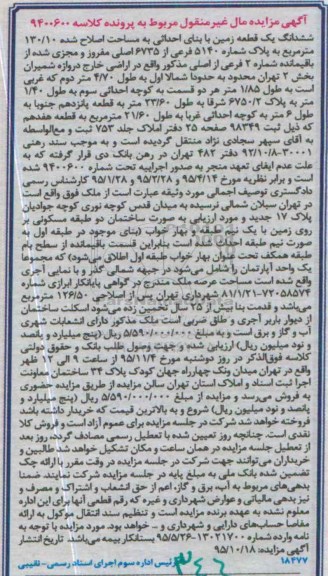 آگهی مزایده مال غیرمنقول مربوط به پرونده کلاسه ۹۴۰۰۶۰۰
ششدانگ یک قطعه زمین با بنای احداثی به مساحت اصلاح شده ۱۳۰/۱۰
مترمربع به پلاک شماره ۵۱۴۰ فرعی از ۶۷۳۵ اصلی مفروز و مجزی شده از
باقیمانده شماره ۲ فرعی از اصلی مذکور واقع در اراضی خارج دروازه شمیران
بخش ۲ تهران محدود به حدود: شمالا اول به طول ۴/۷۰ متر دوم که غربی
است به طول ۱/۸۵ متر هر دو قسمت به کوچه احداثی سوم به طول ۱/۴۰
متر به پلاک ۶۷۵۰/۲ شرقا به طول ۲۳/۶۰ متر به قطعه پانزدهم جنوبا به
طول ۶ متر به کوچه احداثی غربا به طول ۲۱/۶۰ مترمربع به قطعه هفدهم
که ذیل ثبت ۹۸۳۴۹ صفحه ۲۵ دفتر املاک جلد ۷۵۳ ثبت و مع‌الواسطه
به آقای سپهر سجادی نژاد منتقل گردیده است و به موجب سند رهنی
۳۰۰۰۱-۹۲/۱۰/۸ دفتر ۴۸۲ تهران در رهن بانک دی قرار گرفته که به
علت عدم ایفای تعهد منجر به صدور اجراییه تحت شماره ۹۴۰۰۶۰۰ شده
است و برابر نظریه مورخ ۹۵/۴/۱۴ و ۹۵/۲/۲۸ و ۹۵/۱/۲۸ کارشناس رسمی
دادگستری توصیف اجمالی مورد وثیقه عبارت است از ملک فوق واقع است
در تهران سبلان شمالی نرسیده به میدان قدس کوچه نوری کوچه جوادیان
پلاک ۱۷ جدید و مورد ارزیابی به صورت ساختمان دو طبقه مسکونی بر
روی زمین با یک نیم طبقه، بهار خواب (بنای موجود در طبقه اول به
صورت نیم طبقه احداث شده است بنابراین قسمت باقیمانده از سطح بام
طبقه همکف تحت عنوان بهار خواب طبقه اول اطلاق می‌شود) که مجموعا
یک واحد آپارتمان را شامل می‌شود در جبهه شمالی گذر و با نمایی آجری
واقع شده است مساحت عرصه ملک مندرج در گواهی پایانکار ابرازی شماره
۷۲۰۵۸۵۷۴-۸۷/۱/۲۱ شهرداری تهران پس از اصلاحی ۱۲۶/۵۰ مترمربع
می‌باشد و قدمت بنا بیش از ۲۵ سال تخمین زده می‌شود اسکلت ساختمان
از دیوار باربر آجری و طاق ضربی است ملک مذکور دارای انشعابات شهری
آب و گاز و برق است و به مبلغ ۵/۵۹۰/۰۰۰/۰۰۰ ریال (پنج میلیارد و پانصد
و نود میلیون ریال) ارزیابی شده و جهت وصول طلب بانک و حقوق دولتی
کلاسه فوق‌الذکر در روز دوشنبه مورخ ۹۵/۱۱/۴ از ساعت ۹ الی ۱۲ ظهر
واقع در تهران میدان ونک چهارراه جهان کودک پلاک ۳۴ ساختمان معاونت
اجرا ثبت اسناد و املاک استان تهران سالن مزایده از طریق مزایده حضوری
به فروش می‌رسد و مزایده از مبلغ ۵/۵۹۰/۰۰۰/۰۰۰ ریال (پنج میلیارد و
پانصد و نود میلیون ریال) شروع و به بالاترین قیمت که خریدار داشته باشد
فروخته خواهد شد شرکت در جلسه مزایده برای عموم آزاد است و فروش کلا
نقدی است. چنانچه روز تعیین شده با تعطیل رسمی مصادف گردد، روز بعد
از تعطیل جلسه مزایده در همان ساعت و مکان تشکیل خواهد شد طالبین و
خریداران می‌توانند جهت شرکت در جلسه مزایده در وقت مقرر با ارائه چک
تضمین شده بانک ملی به مبلغ پایه در جلسه مزایده شرکت نمایند. ضمنا
بدهی‌های مربوط به آب برق و گاز، اعم از حق انشعاب و اشتراک و مصرف و
نیز بدهی مالیاتی و عوارض شهرداری و غیره که رقم قطعی آنها برای این اداره
معلوم نشده به عهده برنده مزایده است و تنظیم سند انتقال موکول به ارائه
مفاصا حساب‌های دارایی و شهرداری و .. خواهد بود. مورد مزایده با توجه به
نامه وارده شماره ۱۳۰۲۱۷۰۰-۹۵/۵/۲۶ بستانکار بیمه می‌باشد. تاریخ انتشار
آگهی مزایده: ۹۵/۱۰/۱۸
۱۸۴۷۷ رئیس اداره سوم اجرای اسناد رسمی- نقیبی
۳۴۶